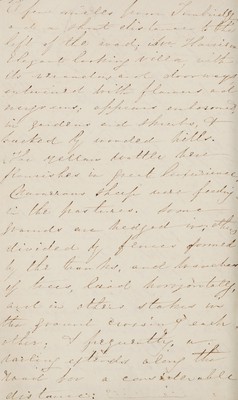 A few miles from
and a short distance to the
left of the road, Mr
Elegant looking Villa, with
its verandas and doorways
entwined with flowers and
evergreens; appears embosomed
in gardens and shrubs, &
backed by wooded hills.
The yellow wattle here
flourishes in great luxuriance.
Camerons sheep were feeding
in the pastures. Some
grounds are hedged in; others
divided by fences formed
by the trunks, and branches
of trees, laid horizontally,
and in others stakes in
the ground crossing each
other; & frequently, a
of along the
road for a considerable
distance;